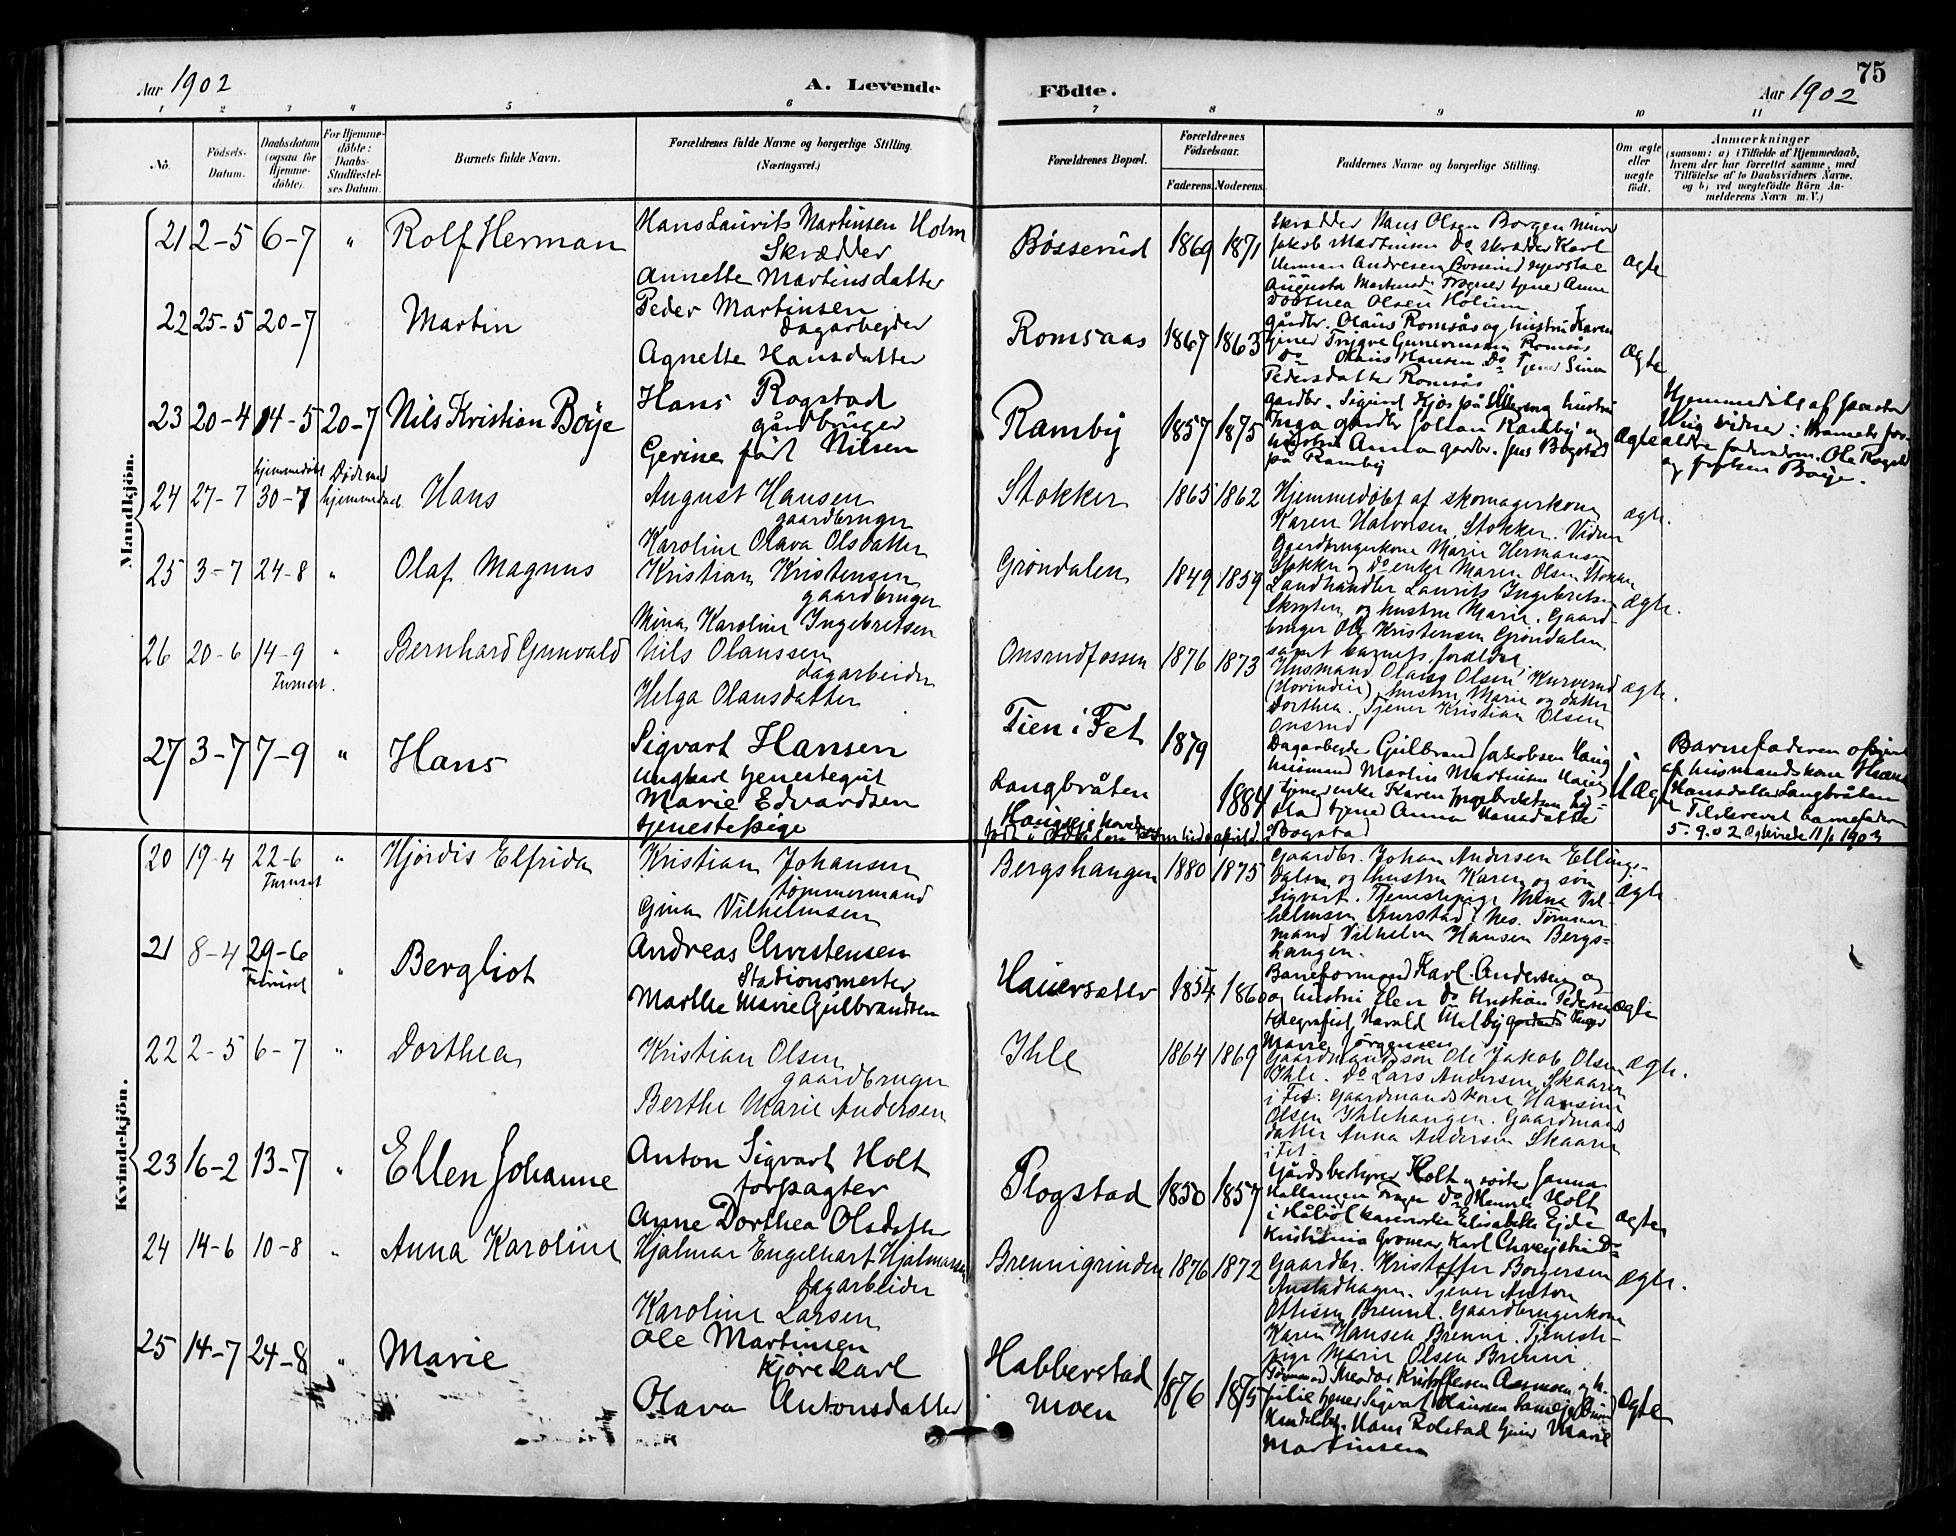 75
Aar 1902
A. Levende
Födte.
Aar 1902
1 2 3 4 5 6 7 8 9 10 11
No.
Födsels-Datum.
Daabsdatum (ogsaa for Hjemme-döbte).
For Hjemme-döbte: Daabs-Stadfæstel-ses Datum.
Barnets fulde Navn.
Forældrenes fulde Navne og borgerlige Stilling. (Næringsvei.)
Forældrenes Bopæl.
Forældrenes Födselsaar.
Faderens. Moderens.
Faddernes Navne og borgerlige Stilling.
Om ægte eller uægte födt.
Anmærkninger
(saasom: a) i Tilfælde af Hjemmedaab,
hvem der har forrettet samme, med
Tilföielse af to Daabsvidners Navne.
og b) ved uægtefödte Börn An-
melderens Navn m. V.)
Mandkjön.
21 2-5 6-7 " Rolf Herman
Hans Laurits Martinsen Holm
Skrædder
Annette Martinsdatter
Bösserud 1869 1871
Skrædder Hans Olsen Borgen
Jakob Martinsen Do skrædder Karl
Herman Andresen Bösserud
Augusta Frogner tjener Anne
Dorthea Olsen Holum
ægte
22 25-5 20-7 " Martin
Peder Martinsen
dagarbejder
Agnette Hansdatter
Romsaas 1867 1863
gårdbr. Olaus Romsås og hustru Karen
tjener Trygve Romsås
Do Olaus Hansen Do Tjener
Pedersdatter Romsås
Ægte
23 20-4 14-5 20-7 Nils Kristian Borje
Hans Rogstad
gårdbruger
Gerine født Nilsen
Ramby 1857 1875
gårdbr. Sigurd Kjos på hustru
Inga gårdbr Johan Ramby og
hustru Anna gårdbr. Jens Bogstad
på Ramby
Ægte
Hjemmedöbt af
vidner: Barnets for-
ældre faderen Ole Rogstad
og frøken Borje.
24 27-7 hjemmedöbt 30-7 Döde med hjemmedaab Hans
August Hansen
gaardbruger
Karoline Olava Olsdatter
Stokker 1865 1862
Hjemmedöbt af skomagerkone
Karen Halvorsen, Stokker. Vidner
Gaardbrugerkone Marie Hermansen
Stokker og Do enke Maren Olsen
ægte.
25 3-7 24-8 " Olaf Magnus
Kristian Kristensen
gaardbruger
Mina Karoline Ingebretsen
Gröndalen 1849 1859
Landhandler Laurits Ingebretsen
og hustru Marie. Gaard-
bruger Ole Kristensen Gröndalen
samt barnets forældre.
ægte.
26 20-6 14-9 Furuset. " Bernhard Gunvald
Nils Olaussen
dagarbeider
Helga Olausdatter
Onsrudfossen 1876 1873
Husmand Olaus Olsen, Kurverud
hustru Marie og datter
Dorthea. Tjener Kristian Olsen
Onsrud
ægte.
27 3-7 7-9 " Hans
Sigvart Hansen
ungkarl tjenestegut
Marie Edvardsen
tjenestepige
Tien i Fet 1879
Langbråten 1884
Dagarbejder Gulbrand Jakobsen Haug
husmand Martin Martinsen
enke Karen Ingebretsen
tjener Anna Hansdatter
Bogstad
Uægte
Barnefaderen opgivet
af husmandskone
Hansdatter Langbråten
Tilskrevet barnefaderen
5-9.02 11/1 1903
Kvindekjön.
20 19-4 22-6 Furuset " Hjördis Elfrida
Kristian Johansen
tömmermand
Gina Vilhelmsen
Bergshangen 1880 1875
Gaardbr. Johan Andersen Ellings-
dalen og hustru Karen og sön
Sigvart. Tjenestepige Mina Vil-
helmsen Aurstad i Nes. Tömmer-
mand Vilhelm Hansen Bergs-
hangen.
ægte
21 8-4 29-6 Furuset " Bergliot
Andreas Christensen
Stationsmester
Marthe Marie Gulbrandsen
Hauersæter 1854
Baneformand Karl Andersen og
og hustru Elen Do Kristian Pedersen
telegrafist Harald
Marie Jörgensen
ægte
22 2-5 6-7 " Dorthea
Kristian Olsen
gaardbruger
Berthe Marie Andersen
Ihle 1864 1869
Gaardmandssön Ole Jakob Olsen
Ihle. Do Lars Andersen, Skaaren
i Fet. Gaardmandskone Hansine
Olsen Ihlehangen. Gaardmands
datter Anna Andersen Skaaren
i Fet.
ægte.
23 16-2 13-7 " Ellen Johanne
Anton Sigvart Holt
forpagter
Anne Dorthea Olsdatter
Plogstad 1850 1857
Gårdsbestyrer Holt og søster Janna
Do Henrik Holt
Elisabeth Ejde
Kristiania Karl
ægte
24 14-6 10-8 " Anna Karoline
Hjalmar Engelhart Hjalmarsen
Dagarbeider
Karoline Larsen
Brennigrinden 1876 1872
Gaardbr. Kristoffer Borgersen
Anstadhagen. Tjener Anton
Ottisen Brenne. Gaardbrugerkone
Karen Hansen Brenne. Tjeneste-
pige Marie Olsen Brenni.
ægte.
25 14-7 24-8 " Marie
Ole Martinsen
Kjörekarl
Olava Antonsdatter
Habberstad
moen 1876 1875
Theodor Kristoffersen Aasmosen og h.
Julie tjener Sigvart Olaussen
Hans Rolstad tjener Marie
Martinsen
Ægte